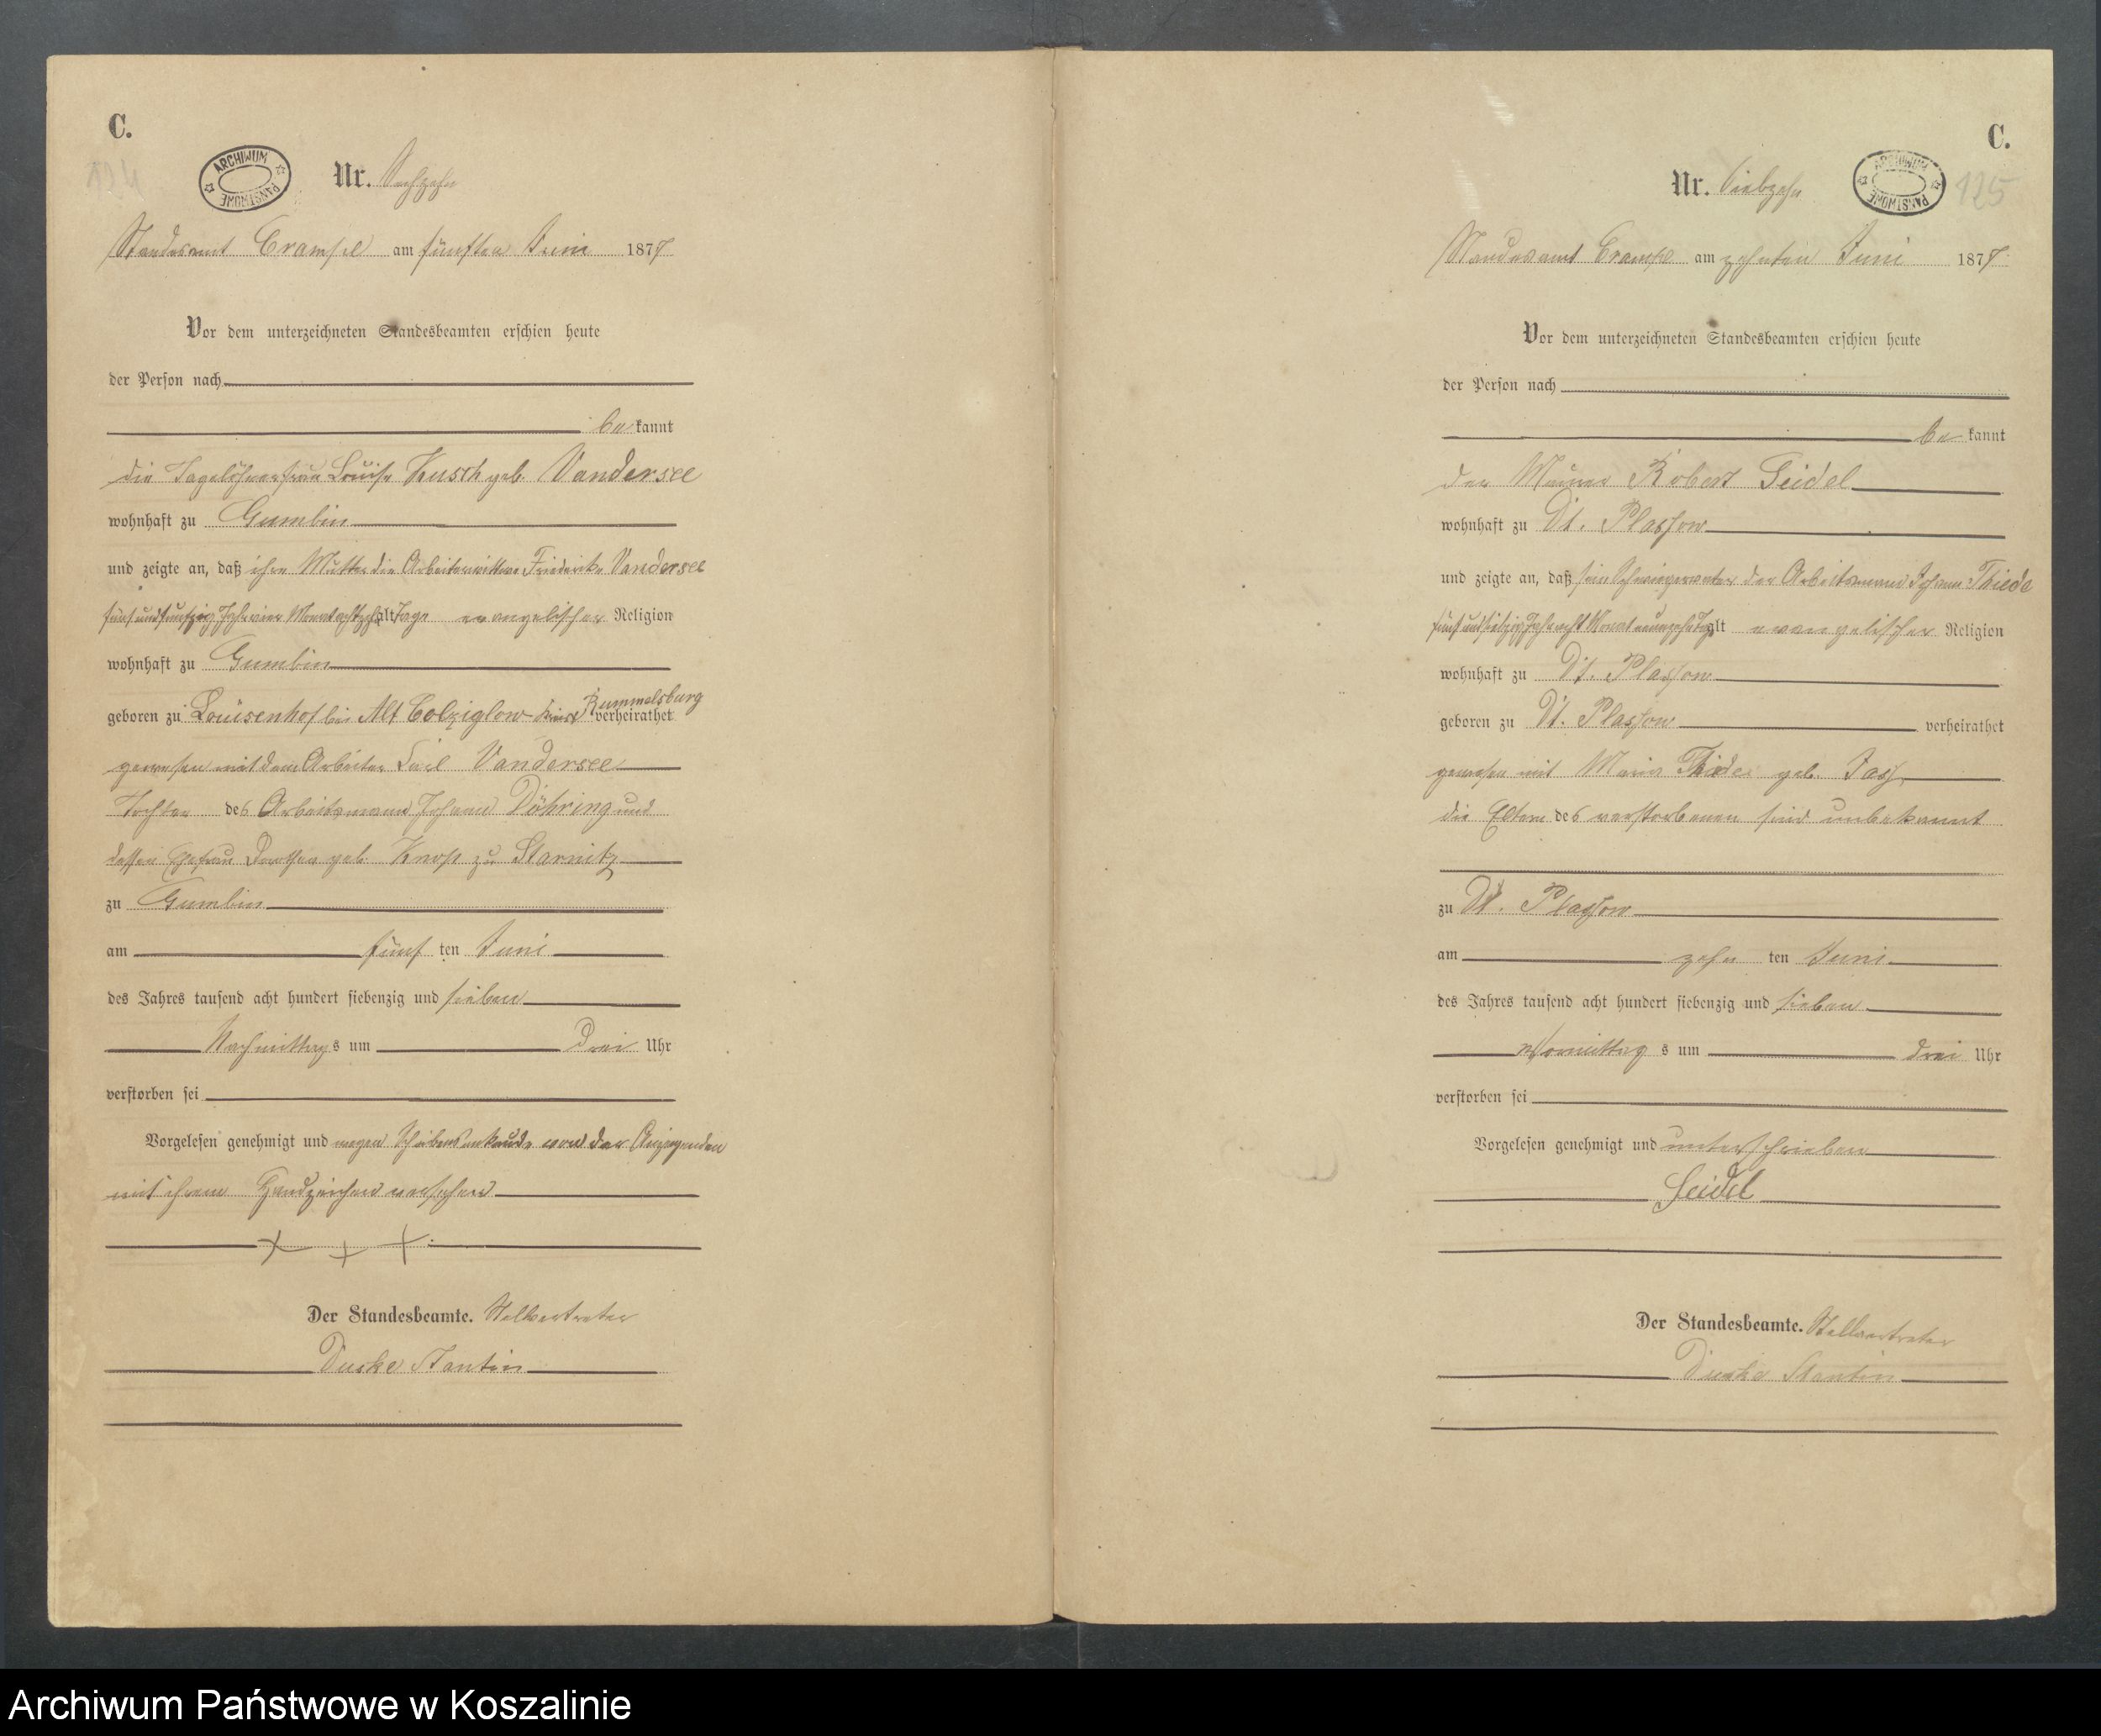 C.
124
ARCHIWUM PAŃSTWOWE
Nr. Sechzehn
Standesamt Crampe am fünften Juni 1877
Vor dem unterzeichneten Standesbeamten erschien heute
der Person nach
be kannt
die Tagelöhnerfrau Louise Kusch geb. Vandersee
wohnhaft zu Gumbin
und zeigte an, daß ihre Mutter die Arbeiterwittwe Friederike Vandersee
fünfundfünfzig Jahr vier Monat achtzehn alt Tage evangelischer Religion
wohnhaft zu Gumbin
geboren zu Louisenhof bei Alt Colziglow Kreis Rummelsburg verheirathet
gewesen mit dem Arbeiter Carl Vandersee
Tochter des Arbeitsmann Johann Döhring und
dessen Ehefrau Dorothea geb. Knop zu Starnitz
zu Gumbin
am fünf ten Juni
des Jahres tausend acht hundert siebenzig und sieben
Nachmittags um Drei Uhr
verstorben sei
Vorgelesen genehmigt und wegen Schreibensunkunde von der Anzeigenden
mit ihrem Handzeichen versehen
+ + +
Der Standesbeamte. Stellvertreter
Duske Stantin
C.
ARCHIWUM PAŃSTWOWE
125
Nr. Siebzehn
Standesamt Crampe am zehnten Juni 1877
Vor dem unterzeichneten Standesbeamten erschien heute
der Person nach
be kannt
der Maurer Robert Seidel
wohnhaft zu Dt. Plassow
und zeigte an, daß sein Schwiegervater der Arbeitsmann Johann Thiede
fünfundsiebzig Jahr acht Monat neunzehn Tage alt evangelischer Religion
wohnhaft zu Dt. Plassow
geboren zu Dt. Plassow verheirathet
gewesen mit Maria Thiede geb. Jass
die Eltern des verstorbenen sind unbekannt
zu Dt. Plassow
am zehn ten Juni
des Jahres tausend acht hundert siebenzig und sieben
Vormittag s um drei Uhr
verstorben sei
Vorgelesen genehmigt und unterschrieben
Seidel
Der Standesbeamte. Stellvertreter
Duske Stantin
Archiwum Państwowe w Koszalinie